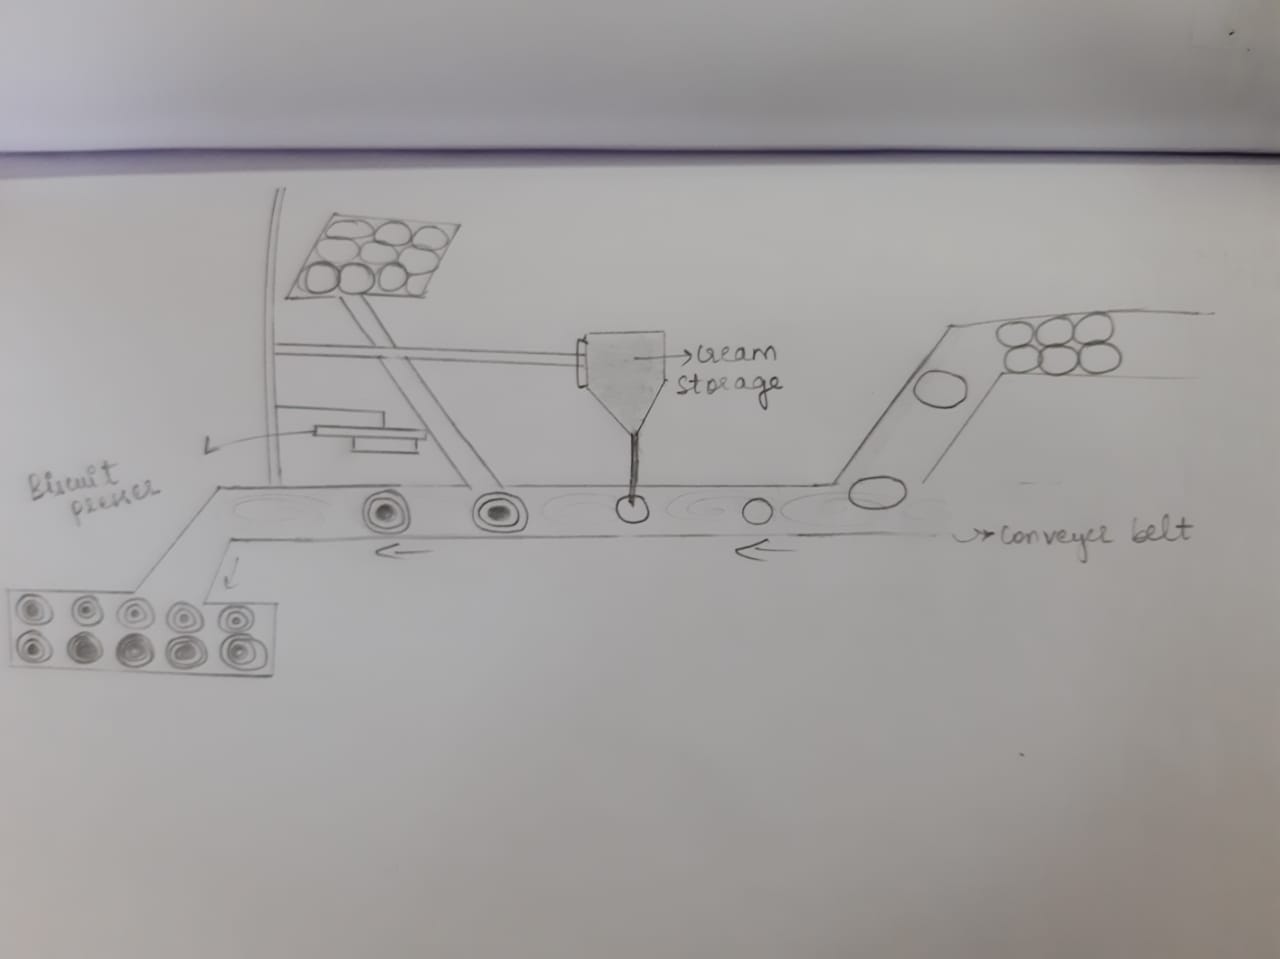 cream
storage
Biscuit
presser
conveyer belt